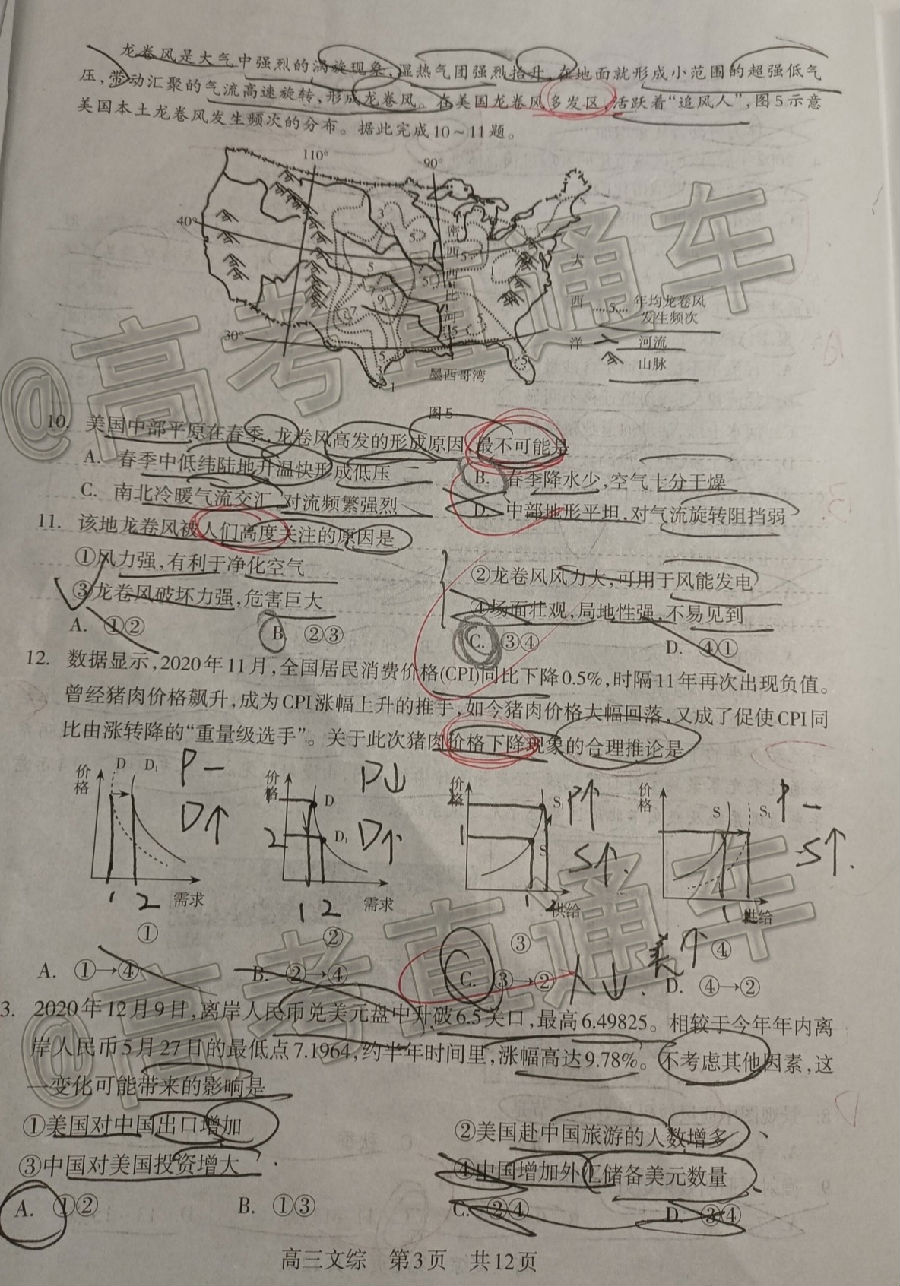 龙卷风是大气中强烈的涡旋现象,湿热气团强烈抬升,在地面就形成小范围的超强低气
压,带动汇聚的气流高速旋转,形成龙卷风。在美国龙卷风多发区,活跃着“追风人”,图5示意
美国本土龙卷风发生频次的分布。据此完成10～11题。
110°
90°
40°
30°
密西西比
大
西
洋
墨西哥湾
…5… 年均龙卷风
发生频次
河流
山脉
图5
10. 美国中部平原在春季,龙卷风高发的形成原因,最不可能是
A. 春季中低纬陆地升温快形成低压
B. 春季降水少,空气十分干燥
C. 南北冷暖气流交汇,对流频繁强烈
D. 中部地形平坦,对气流旋转阻挡弱
11. 该地龙卷风被人们高度关注的原因是
①风力强,有利于净化空气
②龙卷风风力大,可用于风能发电
③龙卷风破坏力强,危害巨大
④场面壮观,局地性强,不易见到
A. ①② B. ②③ C. ③④ D. ④①
12. 数据显示,2020年11月,全国居民消费价格(CPI)同比下降0.5%,时隔11年再次出现负值。
曾经猪肉价格飙升,成为CPI涨幅上升的推手,如今猪肉价格大幅回落,又成了促使CPI同
比由涨转降的“重量级选手”。关于此次猪肉价格下降现象的合理推论是
价格 D D₁ P— D↑ 1 2 需求 ①
价格 2 D D₁ P↓ D↑ 1 2 需求 ②
价格 1 S S P↑ S↑ 1 2 供给 ③
价格 S S₁ P— S↑ 1 供给 ④
A. ①→④ B. ②→④ C. ③→② D. ④→②
人↓ 美↑
3. 2020年12月9日,离岸人民币兑美元盘中升破6.5关口,最高6.49825。相较于今年年内离
岸人民币5月27日的最低点7.1964,约半年时间里,涨幅高达9.78%。不考虑其他因素,这
一变化可能带来的影响是
①美国对中国出口增加
②美国赴中国旅游的人数增多
③中国对美国投资增大
④中国增加外汇储备美元数量
A. ①② B. ①③ C. ②④ D. ③④
高三文综 第3页 共12页
@高考直通车
@高考直通车